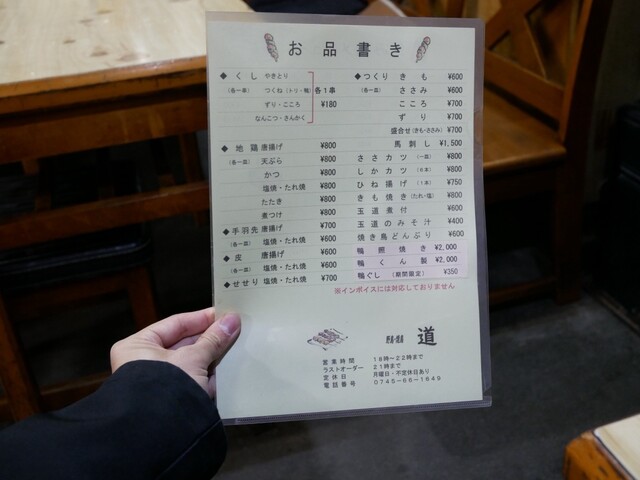 お品書き
◆くし やきとり
(各一皿) つくね(トリ・鴨) 各1串
ずり・こころ ¥180
なんこつ・さんかく
◆地鶏 唐揚げ ¥800
(各一皿) 天ぷら ¥800
かつ ¥800
塩焼・たれ焼 ¥800
たたき ¥800
煮つけ ¥800
◆手羽先 唐揚げ ¥700
(各一皿) 塩焼・たれ焼 ¥600
◆皮 唐揚げ ¥600
(各一皿) 塩焼・たれ焼 ¥600
◆せせり 塩焼・たれ焼 ¥700
◆つくり きも ¥600
(各一皿) ささみ ¥600
こころ ¥700
ずり ¥700
盛合せ(きも・ささみ) ¥700
馬刺し ¥1,500
ささカツ (一皿) ¥800
しかカツ (8本) ¥800
ひね揚げ (1本) ¥750
きも焼き(たれ・塩) ¥800
玉道煮付 ¥600
玉道のみそ汁 ¥400
焼き鳥どんぶり ¥600
鴨照焼き ¥2,000
鴨くん製 ¥2,000
鴨ぐし (期間限定) ¥350
※インボイスには対応しておりません
道
営業時間 18時〜22時まで
ラストオーダー 21時まで
定休日 月曜日・不定休日あり
電話番号 0745-66-1649